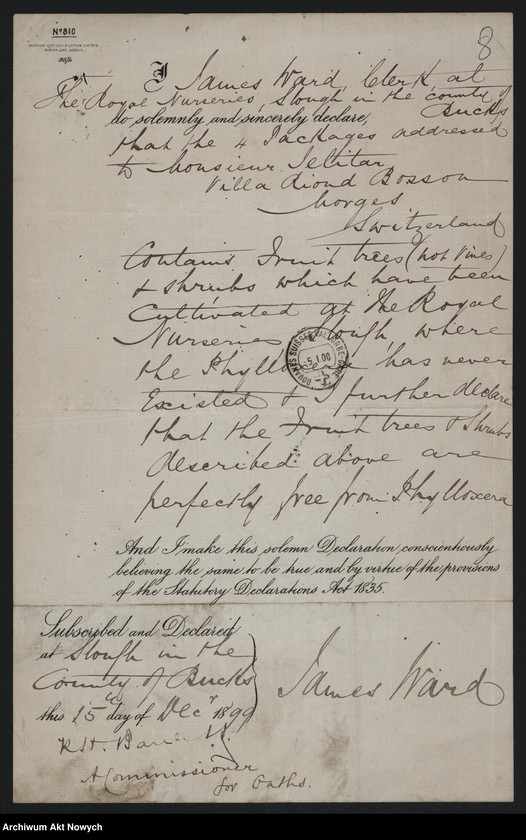 No 810
8
I James Ward, Clerk, at
The Royal Nurseries, Slough in the county of
Bucks
do solemnly and sincerely declare,
that the 4 Packages addressed
to Monsieur
Villa Riond Bosson
Morges
Switzerland
Contains Fruit trees (not Vines)
& shrubs which have been
Cultivated at the Royal
Nurseries Slough where
the Phylloxera has never
Existed & I further declare
that the Fruit trees & Shrubs
described above are
perfectly free from Phylloxera
DOUANES SUISSES VALLORBE-GARE
5.I.00
And I make this solemn Declaration, conscientiously
believing the same to be true, and by virtue of the provisions
of the Statutory Declarations Act 1835.
Subscribed and Declared
at Slough in the
County of Bucks
this 15th day of Decr 1899
James Ward
A Commissioner
for Oaths.
Archiwum Akt Nowych